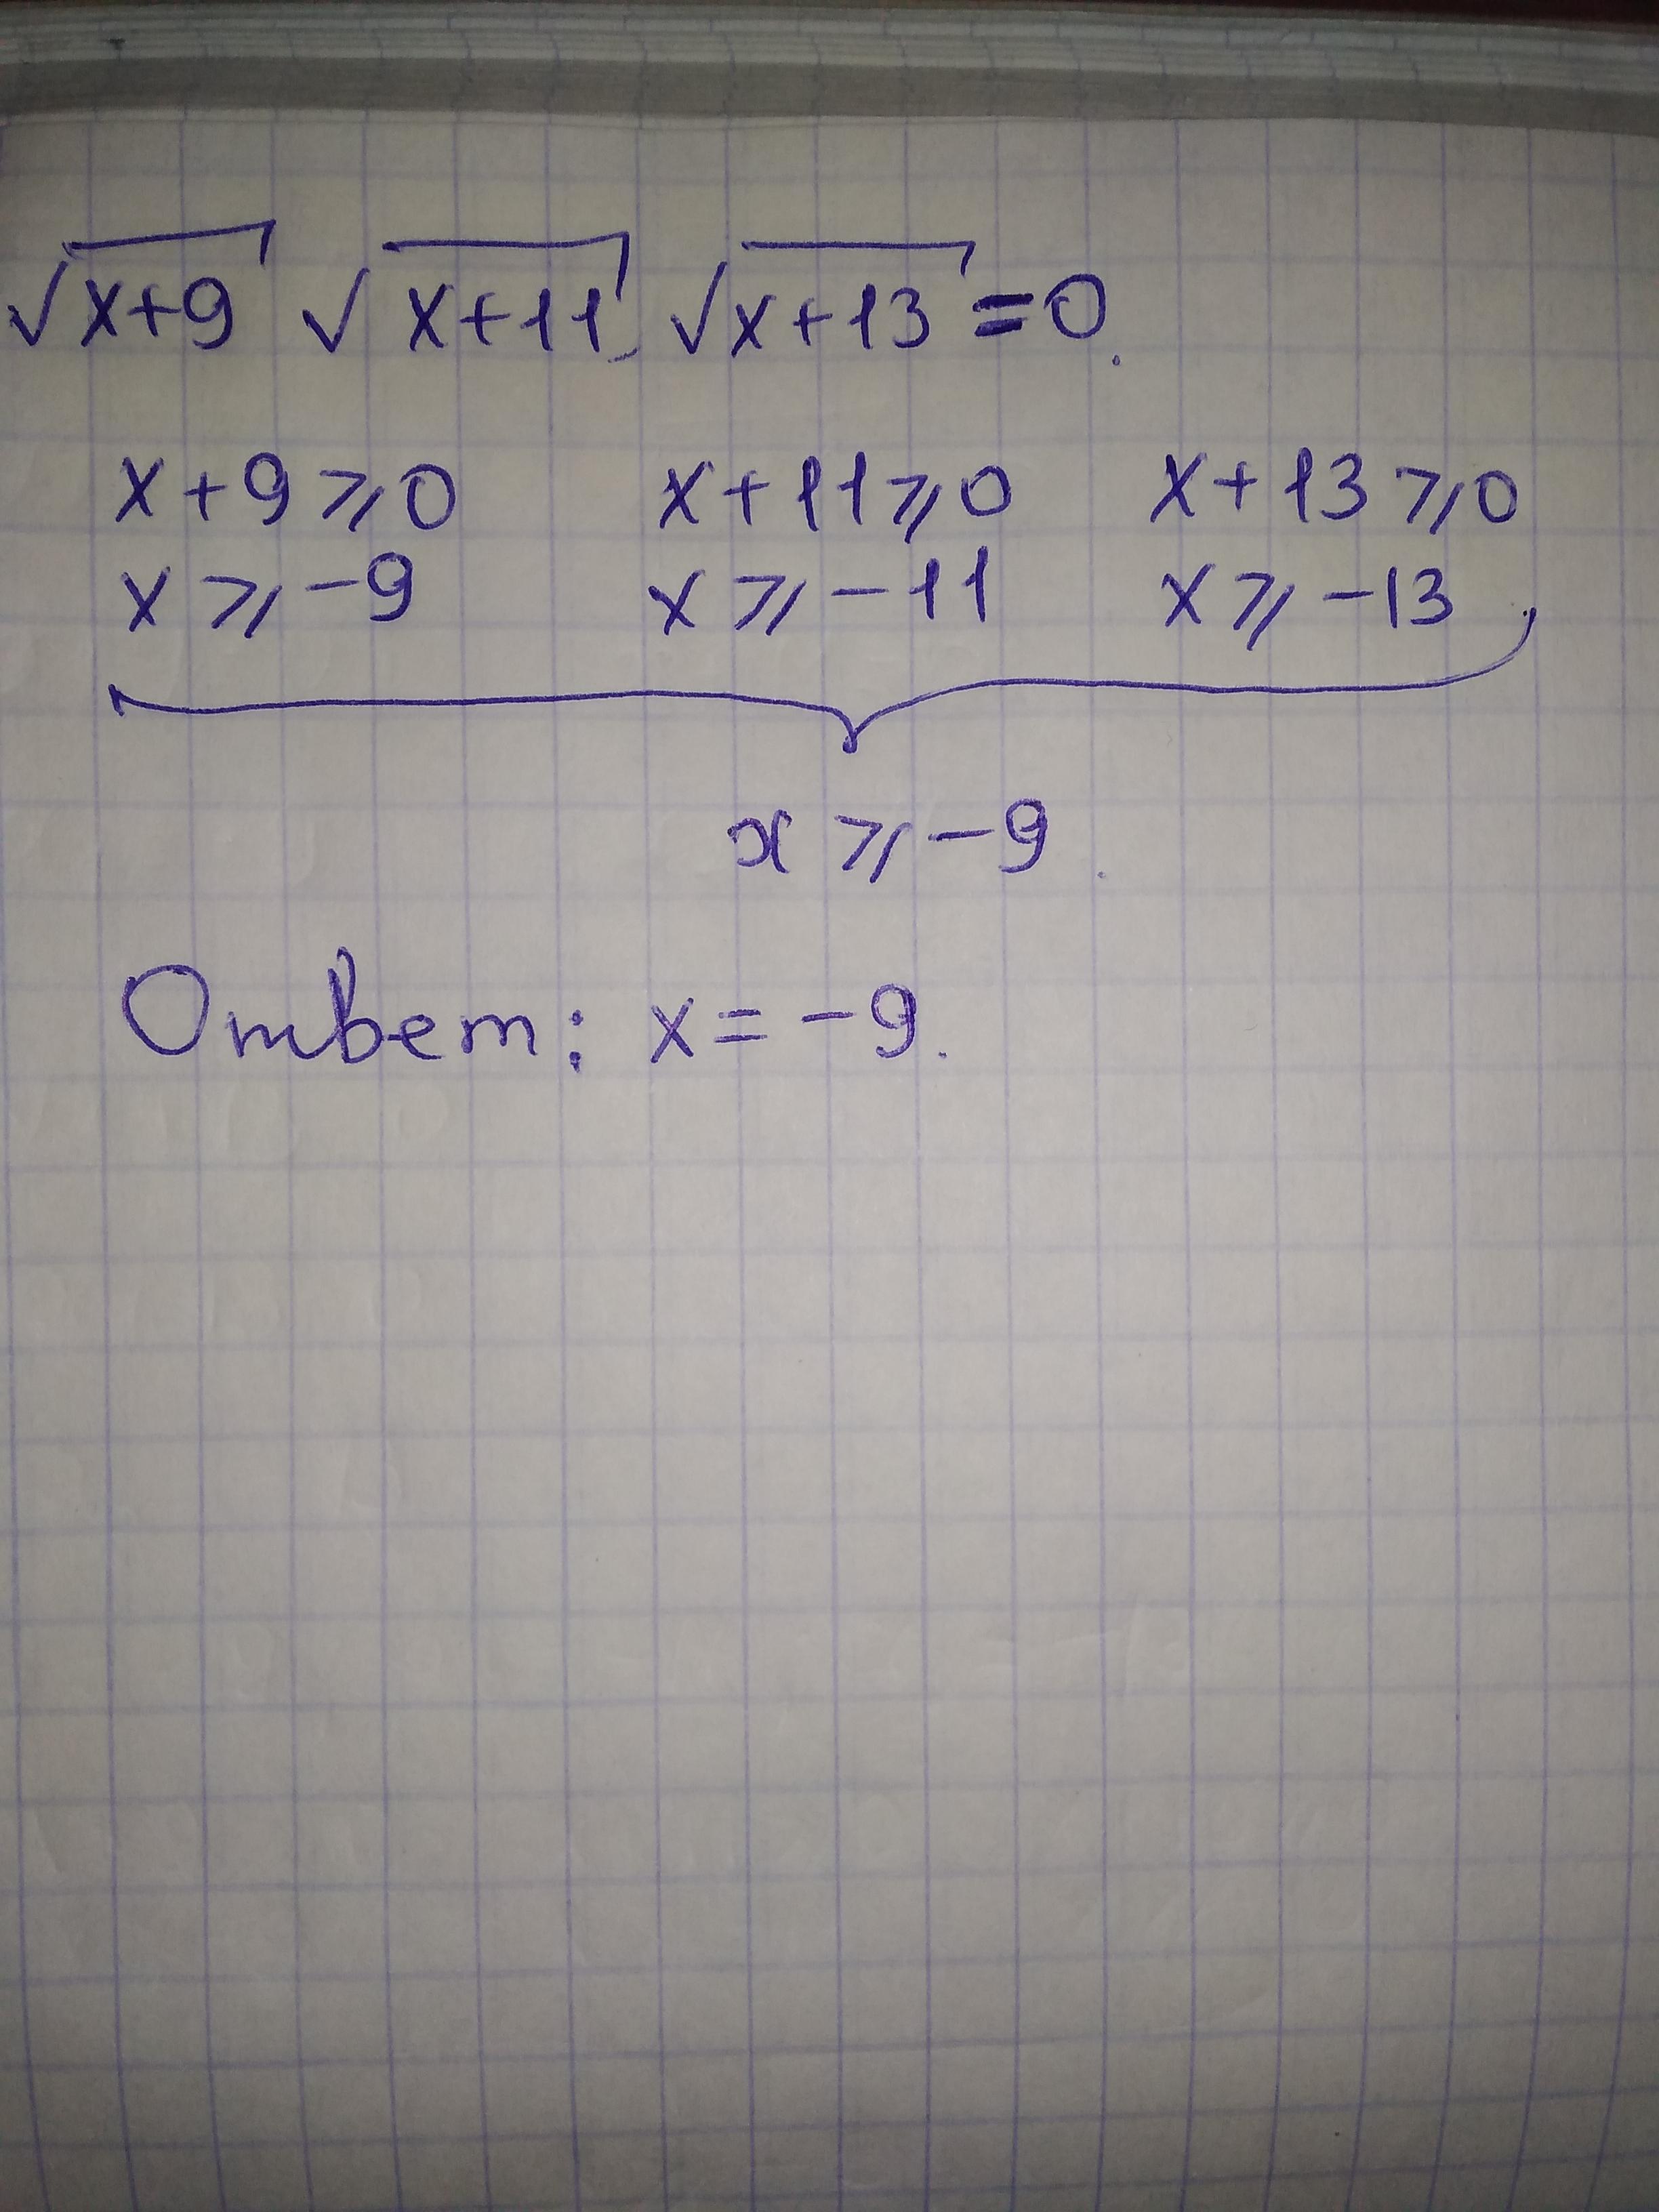 √x+9 √x+11 √x+13 = 0.
x+9⩾0 x+11⩾0 x+13⩾0
x⩾-9 x⩾-11 x⩾-13
x⩾-9.
Ответ: x=-9.